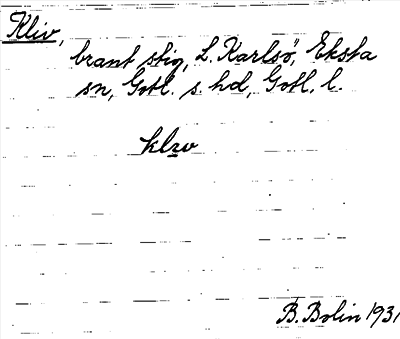 Kliv,
brant stig, L. Karlsö, Eksta
sn, Gotl. s. hd, Gotl. l.
B. Bolin 1931